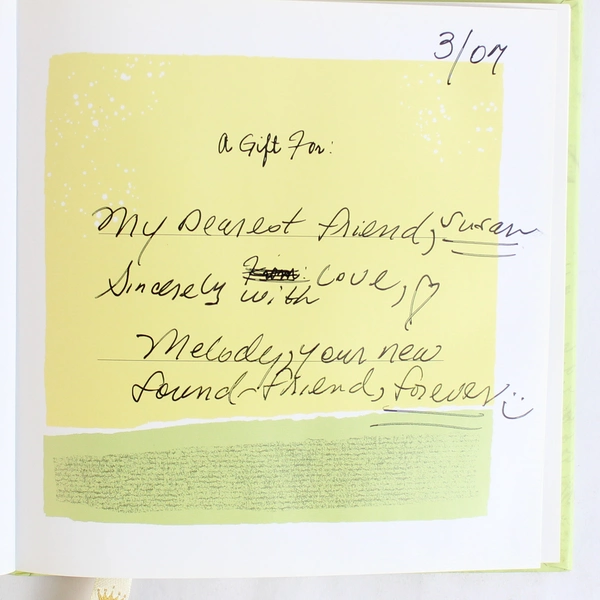 3/07
A Gift For:
My Dearest friend, Susan
Sincerely with Love,
Melody, your new
found-friend, forever